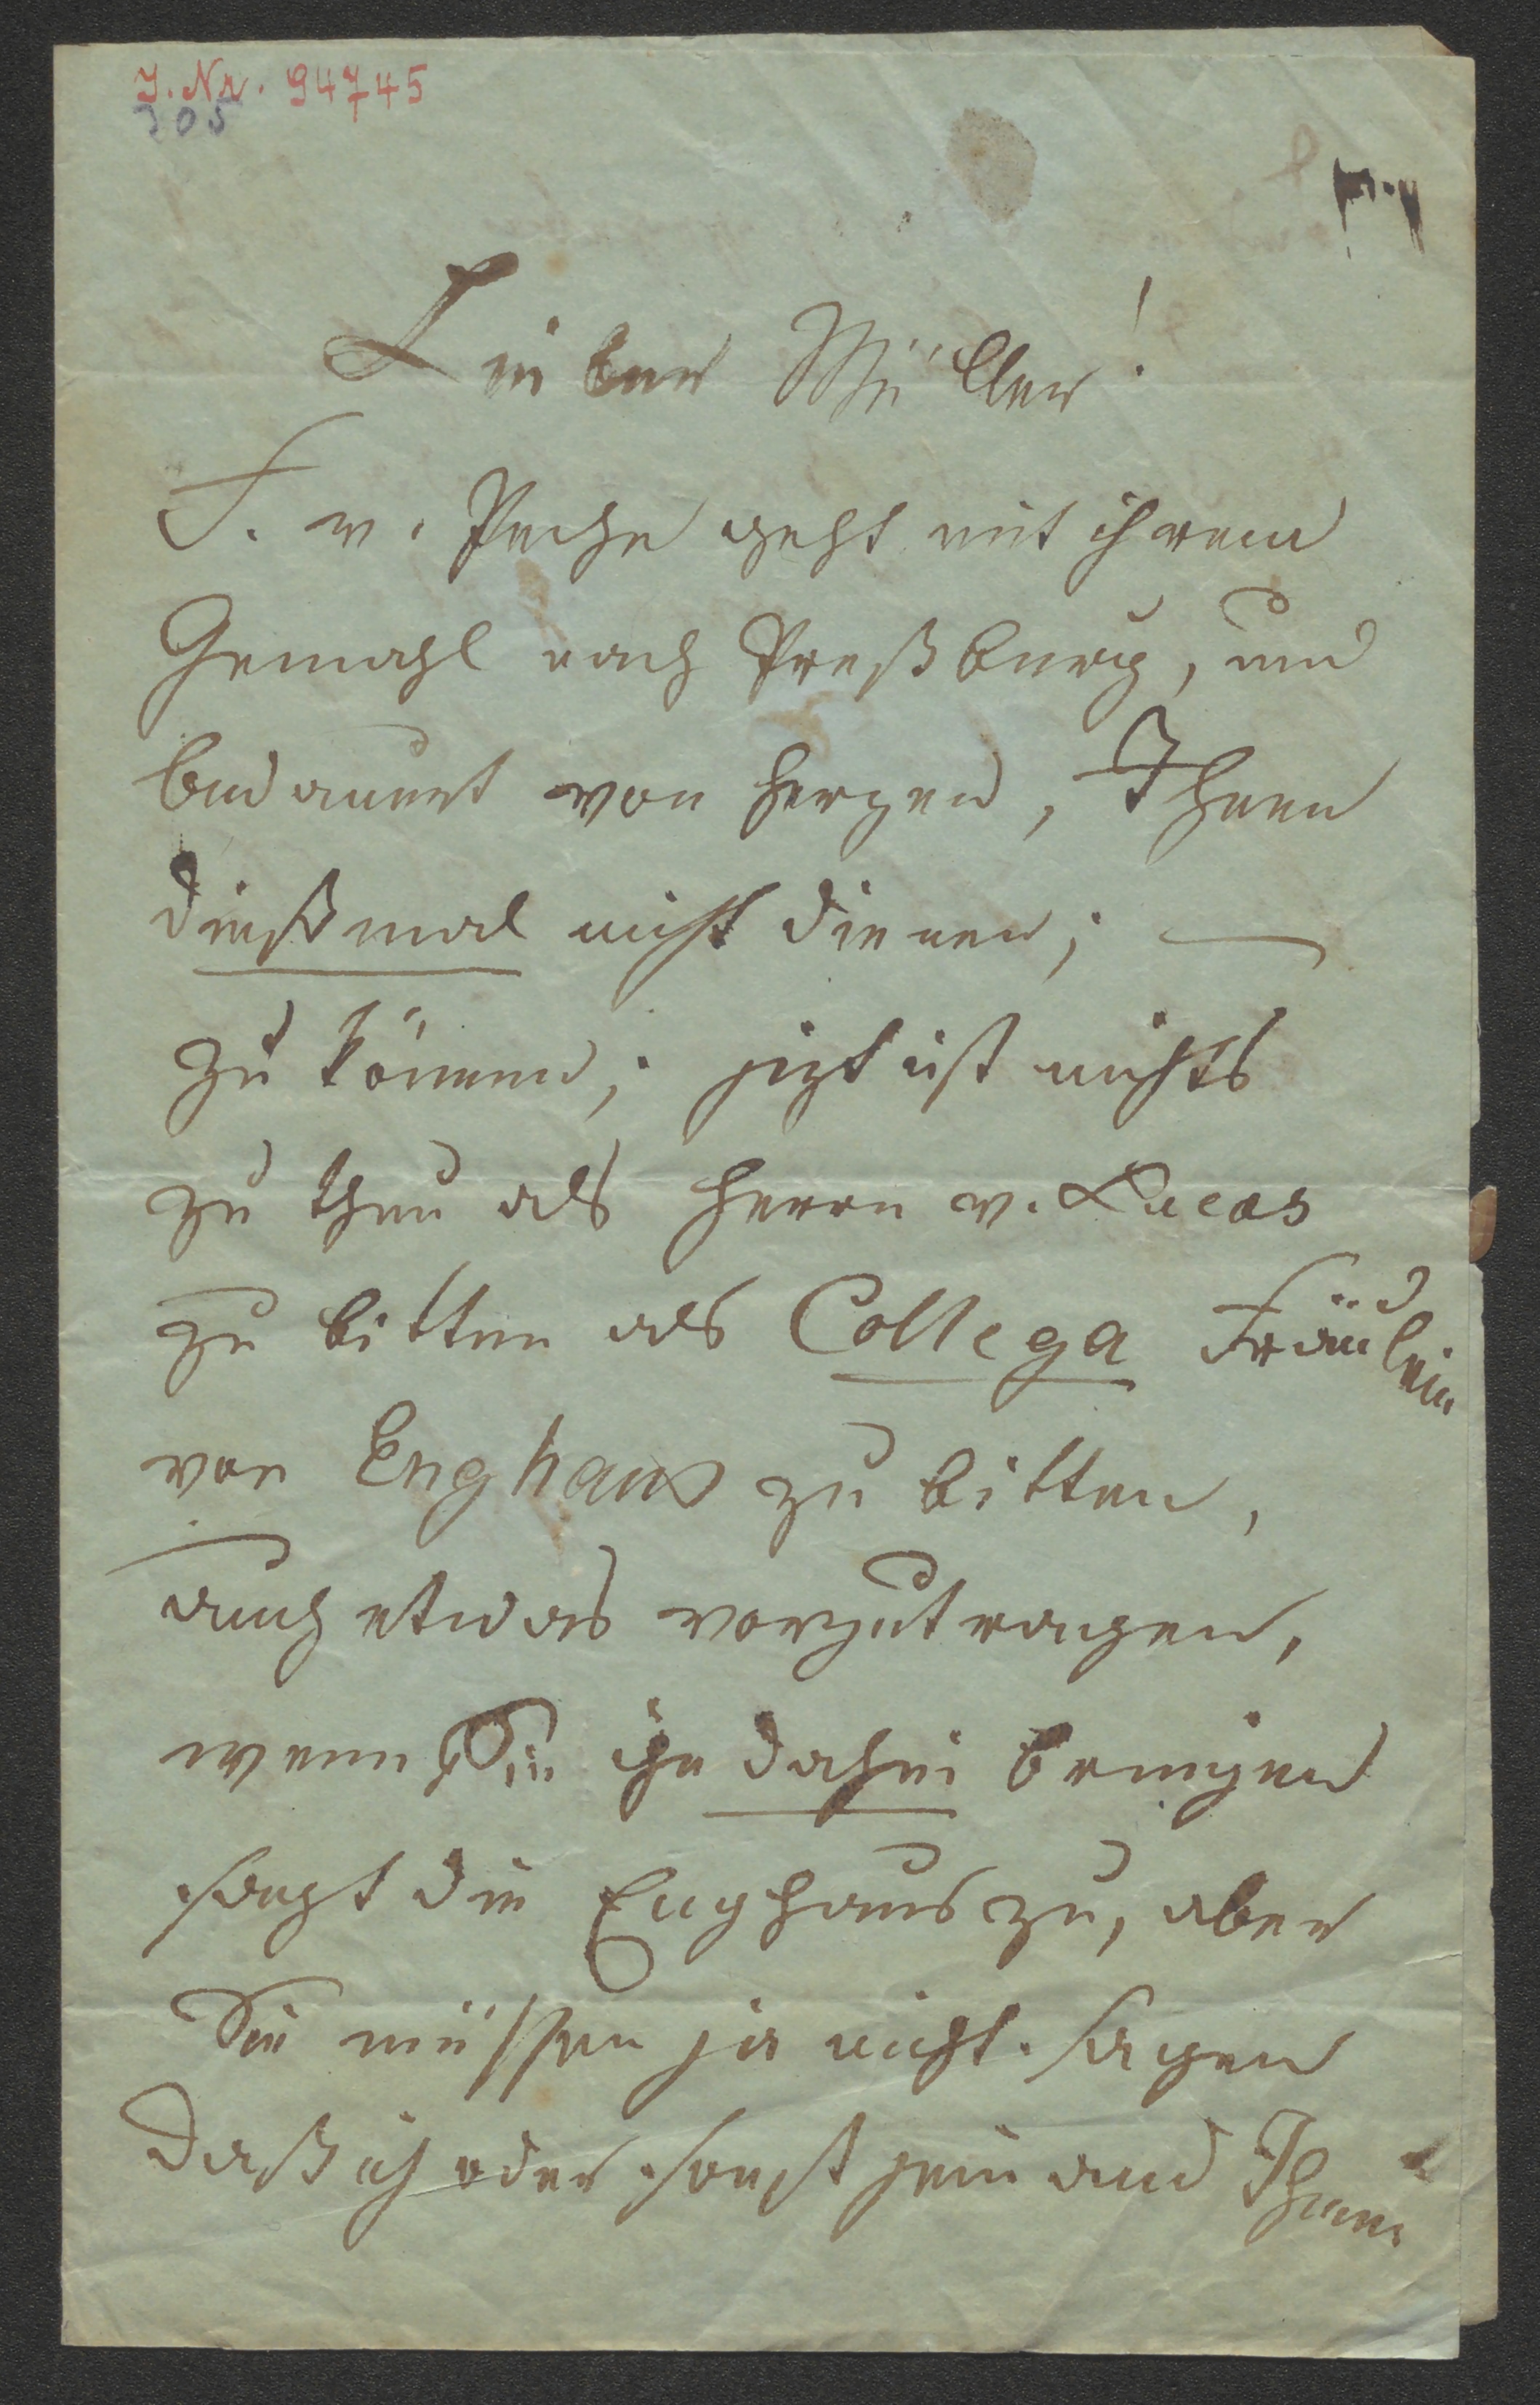 J. Nr. 94745
305
Lieber Müller!
F. v. Peche geht mit ihrem
Gemahl nach Preßburg, und
bedauert von Herzen, Ihnen
dießmal nicht dienen; —
zu können; jezt ist nichts
zu thun als Herrn v. Lucas
zu bitten als Collega Fräulein
von Enghaus zu bitten,
auch etwas vorzutragen,
wenn Sie ihn dahin bringen
sagt die Enghaus zu, aber
Sie müssen ja nicht sagen
daß ich oder sonst jemand Ihnen